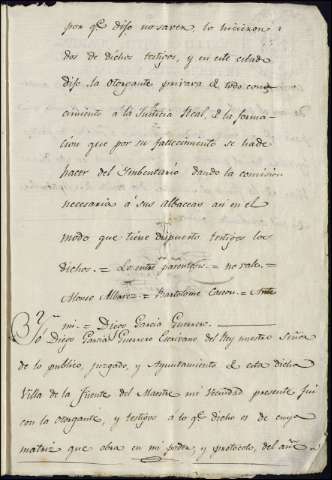 por qe dijo no saver, lo hicieron
dos de dichos testigos, y en este estado
dijo la otorgante privava de todo cono-
cimiento á la Justicia Real, de la forma-
cion que por su fallecimiento se hade
hacer del Imbentario dando la comision
necesaria á sus Albaceas asi en el
modo que tiene dispuesto testigos los
dichos. = Lo entre parentesis = no vale =
Alonso Albarez = Bartolome = Ante
mi = Diego Garcia Guerrero.
Yo Diego Garcia Guerrero Escrivano del Rey nuestro Señor
de lo publico, juzgado, y Ayuntamiento de esta dicha
Villa de la Fuente del Maestre mi vecindad presente fui
con la otorgante, y testigos a lo qe dicho es de cuya
matriz que obra en mi poder, y protocolo, del año